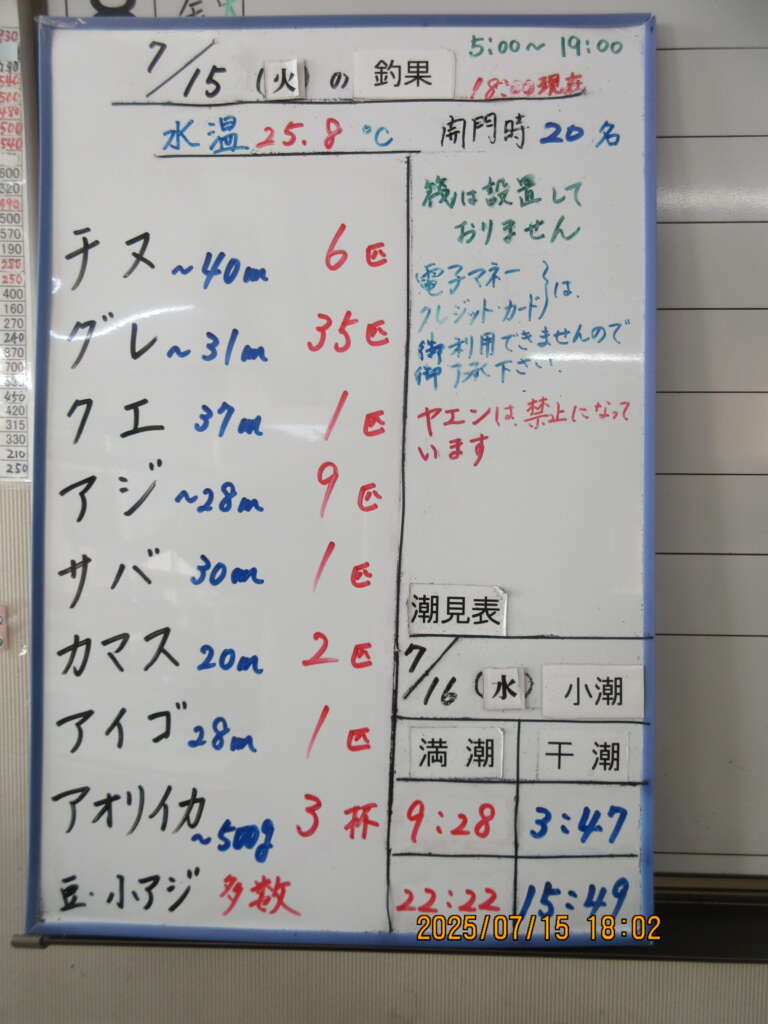 7/15 (火) の 釣果
5:00～19:00
18:00現在
水温 25.8℃ 開門時 20名
チヌ ～40cm 6匹
グレ ～31cm 35匹
クエ 37cm 1匹
アジ ～28cm 9匹
サバ 30cm 1匹
カマス 20cm 2匹
アイゴ 28cm 1匹
アオリイカ ～500g 3杯
豆・小アジ 多数
筏は設置して
おりません
電子マネー
クレジット・カード}は
御利用できませんので
御了承下さい.
ヤエンは、禁止になって
います
潮見表
7/16 (水) 小潮
満潮 干潮
9:28 3:47
22:22 15:49
2025/07/15 18:02